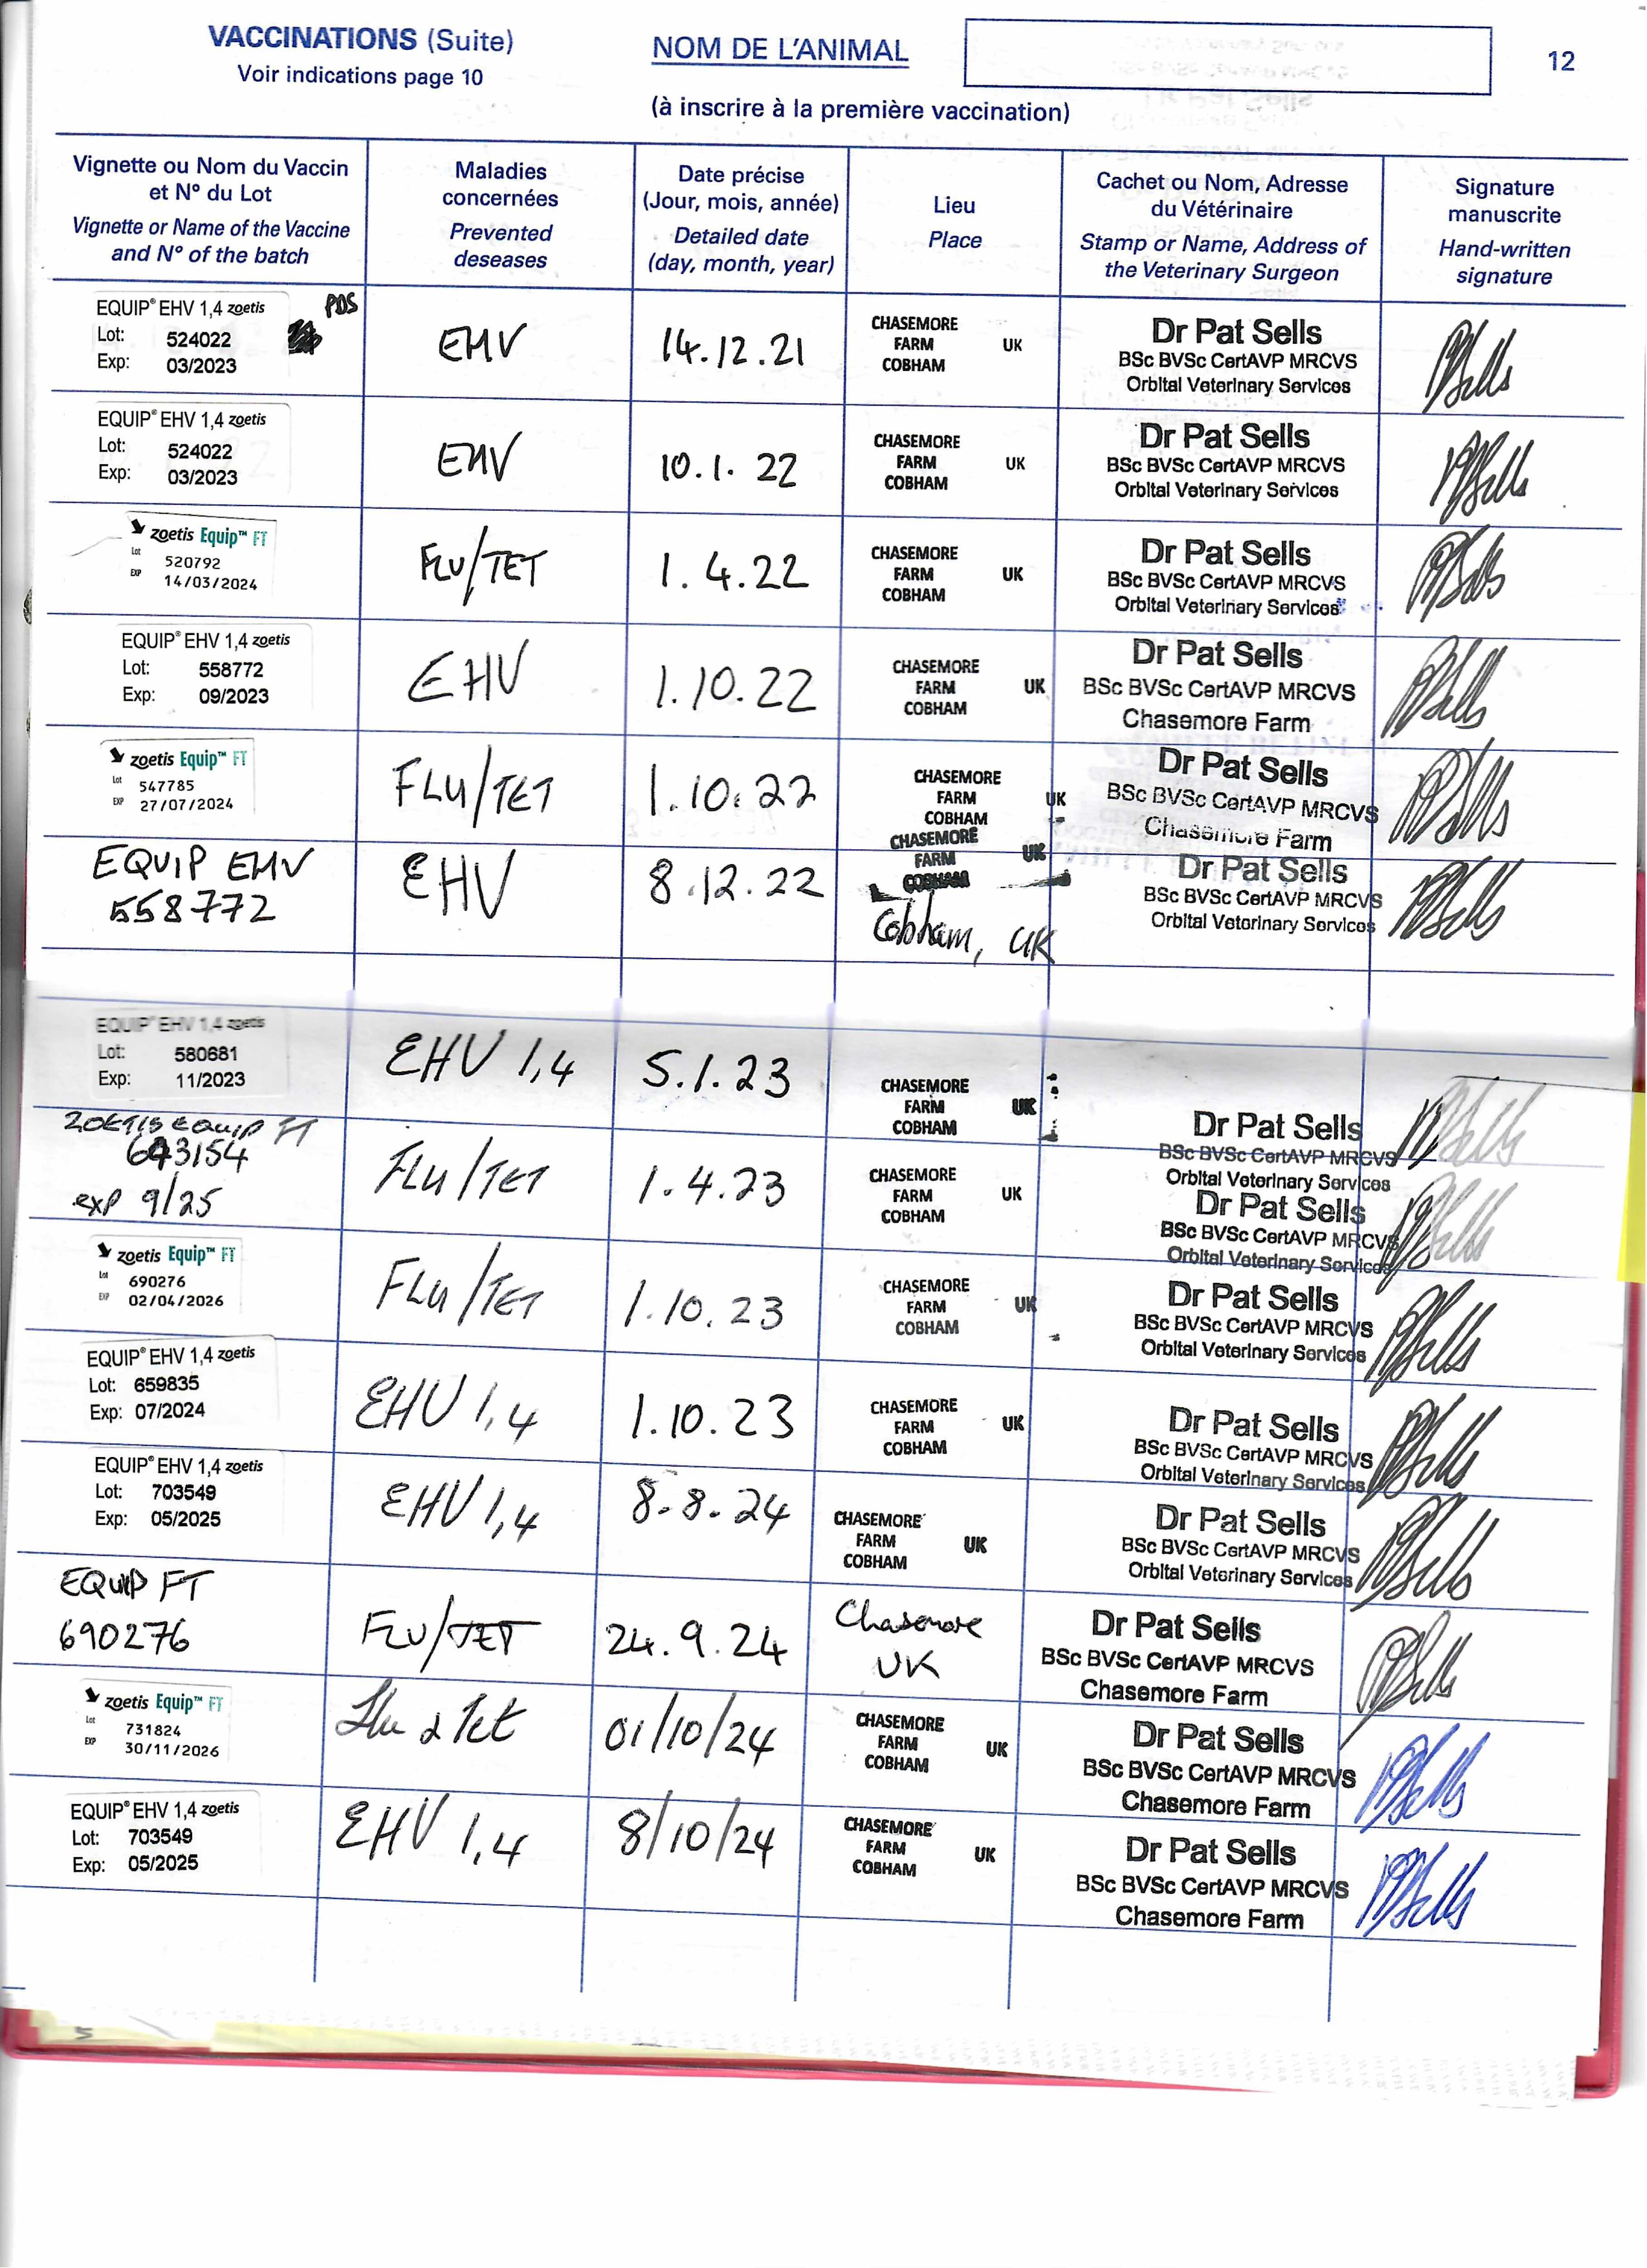 VACCINATIONS (Suite)
Voir indications page 10
NOM DE L'ANIMAL
(à inscrire à la première vaccination)
12
Vignette ou Nom du Vaccin
et N° du Lot
Vignette or Name of the Vaccine
and N° of the batch
Maladies
concernées
Prevented
deseases
Date précise
(Jour, mois, année)
Detailed date
(day, month, year)
Lieu
Place
Cachet ou Nom, Adresse
du Vétérinaire
Stamp or Name, Address of
the Veterinary Surgeon
Signature
manuscrite
Hand-written
signature
EQUIP® EHV 1,4 zoetis
Lot: 524022
Exp: 03/2023
PDS
EHV
14.12.21
CHASEMORE
FARM UK
COBHAM
Dr Pat Sells
BSc BVSc CertAVP MRCVS
Orbital Veterinary Services
PSells
EQUIP® EHV 1,4 zoetis
Lot: 524022
Exp: 03/2023
EHV
10.1.22
CHASEMORE
FARM UK
COBHAM
Dr Pat Sells
BSc BVSc CertAVP MRCVS
Orbital Veterinary Services
PSells
zoetis Equip™ FT
Lot 520792
EXP 14/03/2024
FLU/TET
1.4.22
CHASEMORE
FARM UK
COBHAM
Dr Pat Sells
BSc BVSc CertAVP MRCVS
Orbital Veterinary Services
PSells
EQUIP® EHV 1,4 zoetis
Lot: 558772
Exp: 09/2023
EHV
1.10.22
CHASEMORE
FARM UK
COBHAM
Dr Pat Sells
BSc BVSc CertAVP MRCVS
Chasemore Farm
PSells
zoetis Equip™ FT
Lot 547785
EXP 27/07/2024
FLU/TET
1.10.22
CHASEMORE
FARM UK
COBHAM
Dr Pat Sells
BSc BVSc CertAVP MRCVS
Chasemore Farm
PSells
EQUIP EHV
558772
EHV
8.12.22
CHASEMORE
FARM UK
COBHAM
Cobham, UK
Dr Pat Sells
BSc BVSc CertAVP MRCVS
Orbital Veterinary Services
PSells
EQUIP® EHV 1,4 zoetis
Lot: 580681
Exp: 11/2023
EHV 1,4
5.1.23
CHASEMORE
FARM UK
COBHAM
Dr Pat Sells
BSc BVSc CertAVP MRCVS
Orbital Veterinary Services
PSells
ZOETIS EQUIP FT
643154
exp 9/25
FLU/TET
1.4.23
CHASEMORE
FARM UK
COBHAM
Dr Pat Sells
BSc BVSc CertAVP MRCVS
Orbital Veterinary Services
PSells
zoetis Equip™ FT
Lot 690276
EXP 02/04/2026
FLU/TET
1.10.23
CHASEMORE
FARM UK
COBHAM
Dr Pat Sells
BSc BVSc CertAVP MRCVS
Orbital Veterinary Services
PSells
EQUIP® EHV 1,4 zoetis
Lot: 659835
Exp: 07/2024
EHV 1,4
1.10.23
CHASEMORE
FARM UK
COBHAM
Dr Pat Sells
BSc BVSc CertAVP MRCVS
Orbital Veterinary Services
PSells
EQUIP® EHV 1,4 zoetis
Lot: 703549
Exp: 05/2025
EHV 1,4
8.8.24
CHASEMORE
FARM UK
COBHAM
Dr Pat Sells
BSc BVSc CertAVP MRCVS
Orbital Veterinary Services
PSells
EQUIP FT
690276
FLU/TET
24.9.24
Chasemore
UK
Dr Pat Sells
BSc BVSc CertAVP MRCVS
Chasemore Farm
PSells
zoetis Equip™ FT
Lot 731824
EXP 30/11/2026
Flu & Tet
01/10/24
CHASEMORE
FARM UK
COBHAM
Dr Pat Sells
BSc BVSc CertAVP MRCVS
Chasemore Farm
PSells
EQUIP® EHV 1,4 zoetis
Lot: 703549
Exp: 05/2025
EHV 1,4
8/10/24
CHASEMORE
FARM UK
COBHAM
Dr Pat Sells
BSc BVSc CertAVP MRCVS
Chasemore Farm
PSells